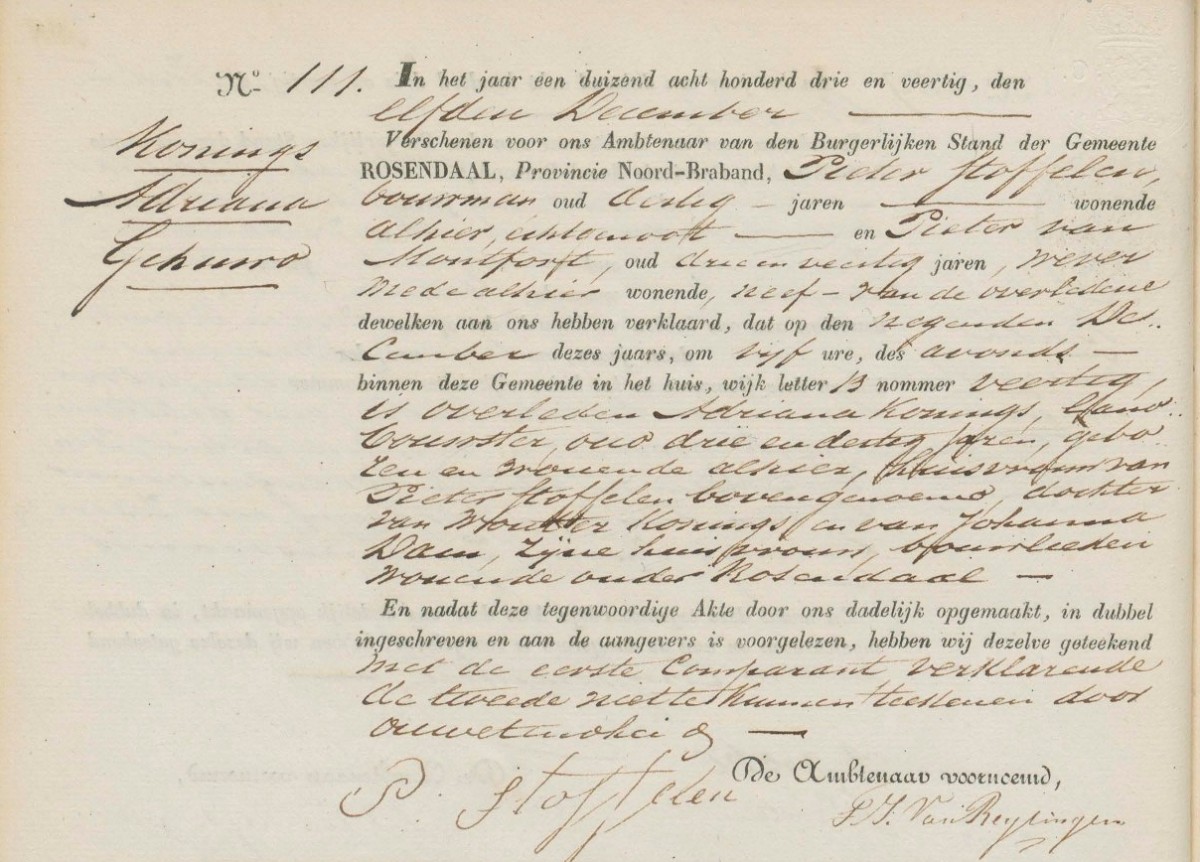 No 111.
Konings
Adriana
Gehuwd
In het jaar een duizend acht honderd drie en veertig, den
elfden December
Verschenen voor ons Ambtenaar van den Burgerlijken Stand der Gemeente
ROSENDAAL, Provincie Noord-Braband, Pieter Stoffelen,
bouwman, oud dertig jaren wonende
alhier, echtgenoot en Pieter van
Montfort, oud drie en veertig jaren, wever
mede alhier wonende, neef van de overledene
dewelken aan ons hebben verklaard, dat op den negenden De
cember dezes jaars, om vijf ure, des avonds
binnen deze Gemeente in het huis, wijk letter B nommer veertig,
is overleden Adriana Konings, Land
bouwster, oud drie en dertig jaren, gebo
ren en wonende alhier, huisvrouw van
Pieter Stoffelen bovengenoemd, dochter
van Woutter Konings en van Johanna
Dam, zijne huisvrouw, bouwlieden
wonende onder Rosendaal
En nadat deze tegenwoordige Akte door ons dadelijk opgemaakt, in dubbel
ingeschreven en aan de aangevers is voorgelezen, hebben wij dezelve geteekend
met de eerste Comparant verklarende
de tweede niet te kunnen teekenen door
onwetendheid
De Ambtenaar voornoemd,
P. Stoffelen